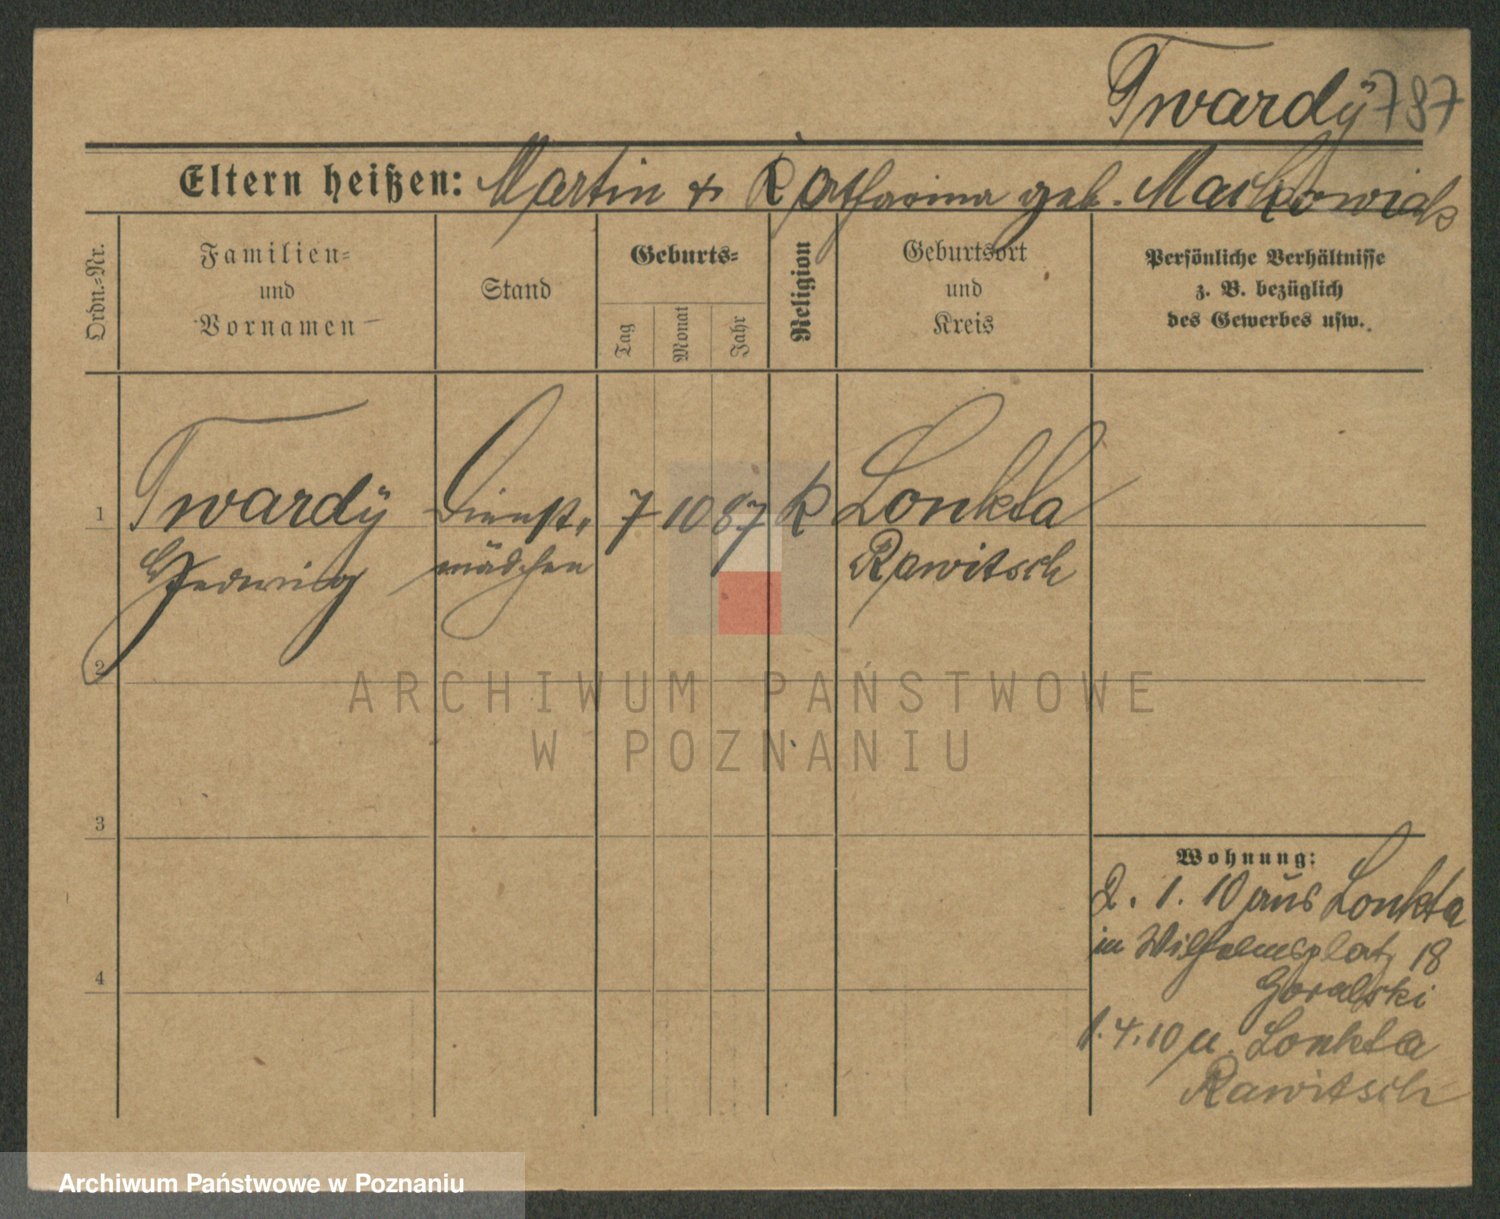 Twardÿ 787
Eltern heißen: Martin & Katharina geb. Maćkowiak
Ordn.-Nr.
Familien=
und
Vornamen
Stand
Geburts=
Tag
Monat
Jahr
Religion
Geburtsort
und
Kreis
Persönliche Verhältnisse
z. B. bezüglich
des Gewerbes usw.
1 Twardÿ Dienst- 7 10 87 K Lonkta
Hedwig mädchen Rawitsch
2
3
4
ARCHIWUM PAŃSTWOWE
W POZNANIU
Wohnung:
2. 1. 10 aus Lonkta
in Wilhelmsplatz 18
Goralski
1. 4. 10 n. Lonkta
Rawitsch
Archiwum Państwowe w Poznaniu